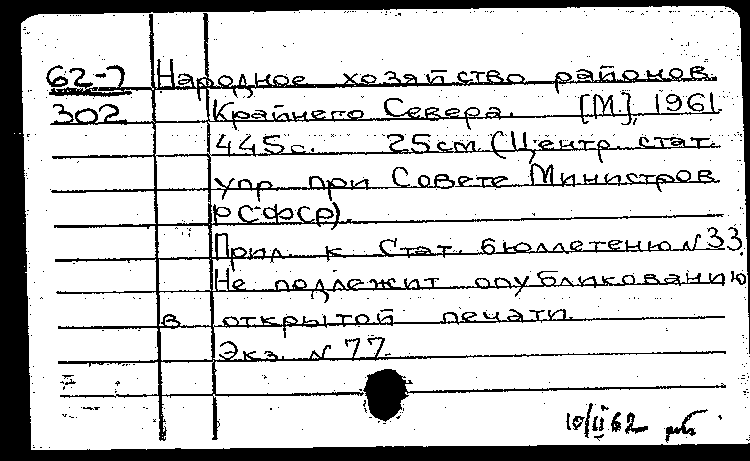 62-7 Народное хозяйство районов
302 Крайнего Севера. [М], 1961.
445с. 25см (Центр. стат.
упр. при Совете Министров
РСФСР).
Прил. к Стат. бюллетеню N 33.
Не подлежит опубликованию
в открытой печати.
Экз. N 77
10/II 62